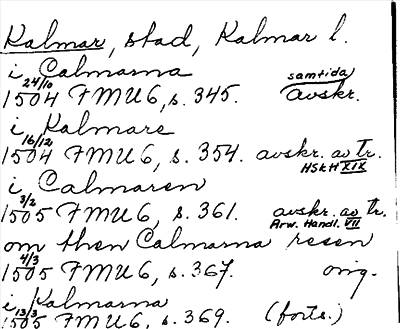 Kalmar, stad, Kalmar l.
i Calmarna
24/10 samtida
1504 FMU 6, s. 345. avskr.
i Kalmare
16/12
1504 FMU 6, s. 354. avskr. av tr.
HSkH XIX
i Calmaren
3/2
1505 FMU 6, s. 361. avskr. av tr.
Arw. Handl. VII
om then Calmarna resen
4/3
1505 FMU 6, s. 367. orig.
i Kalmarna
13/3
1505 FMU 6, s. 369. (forts.)